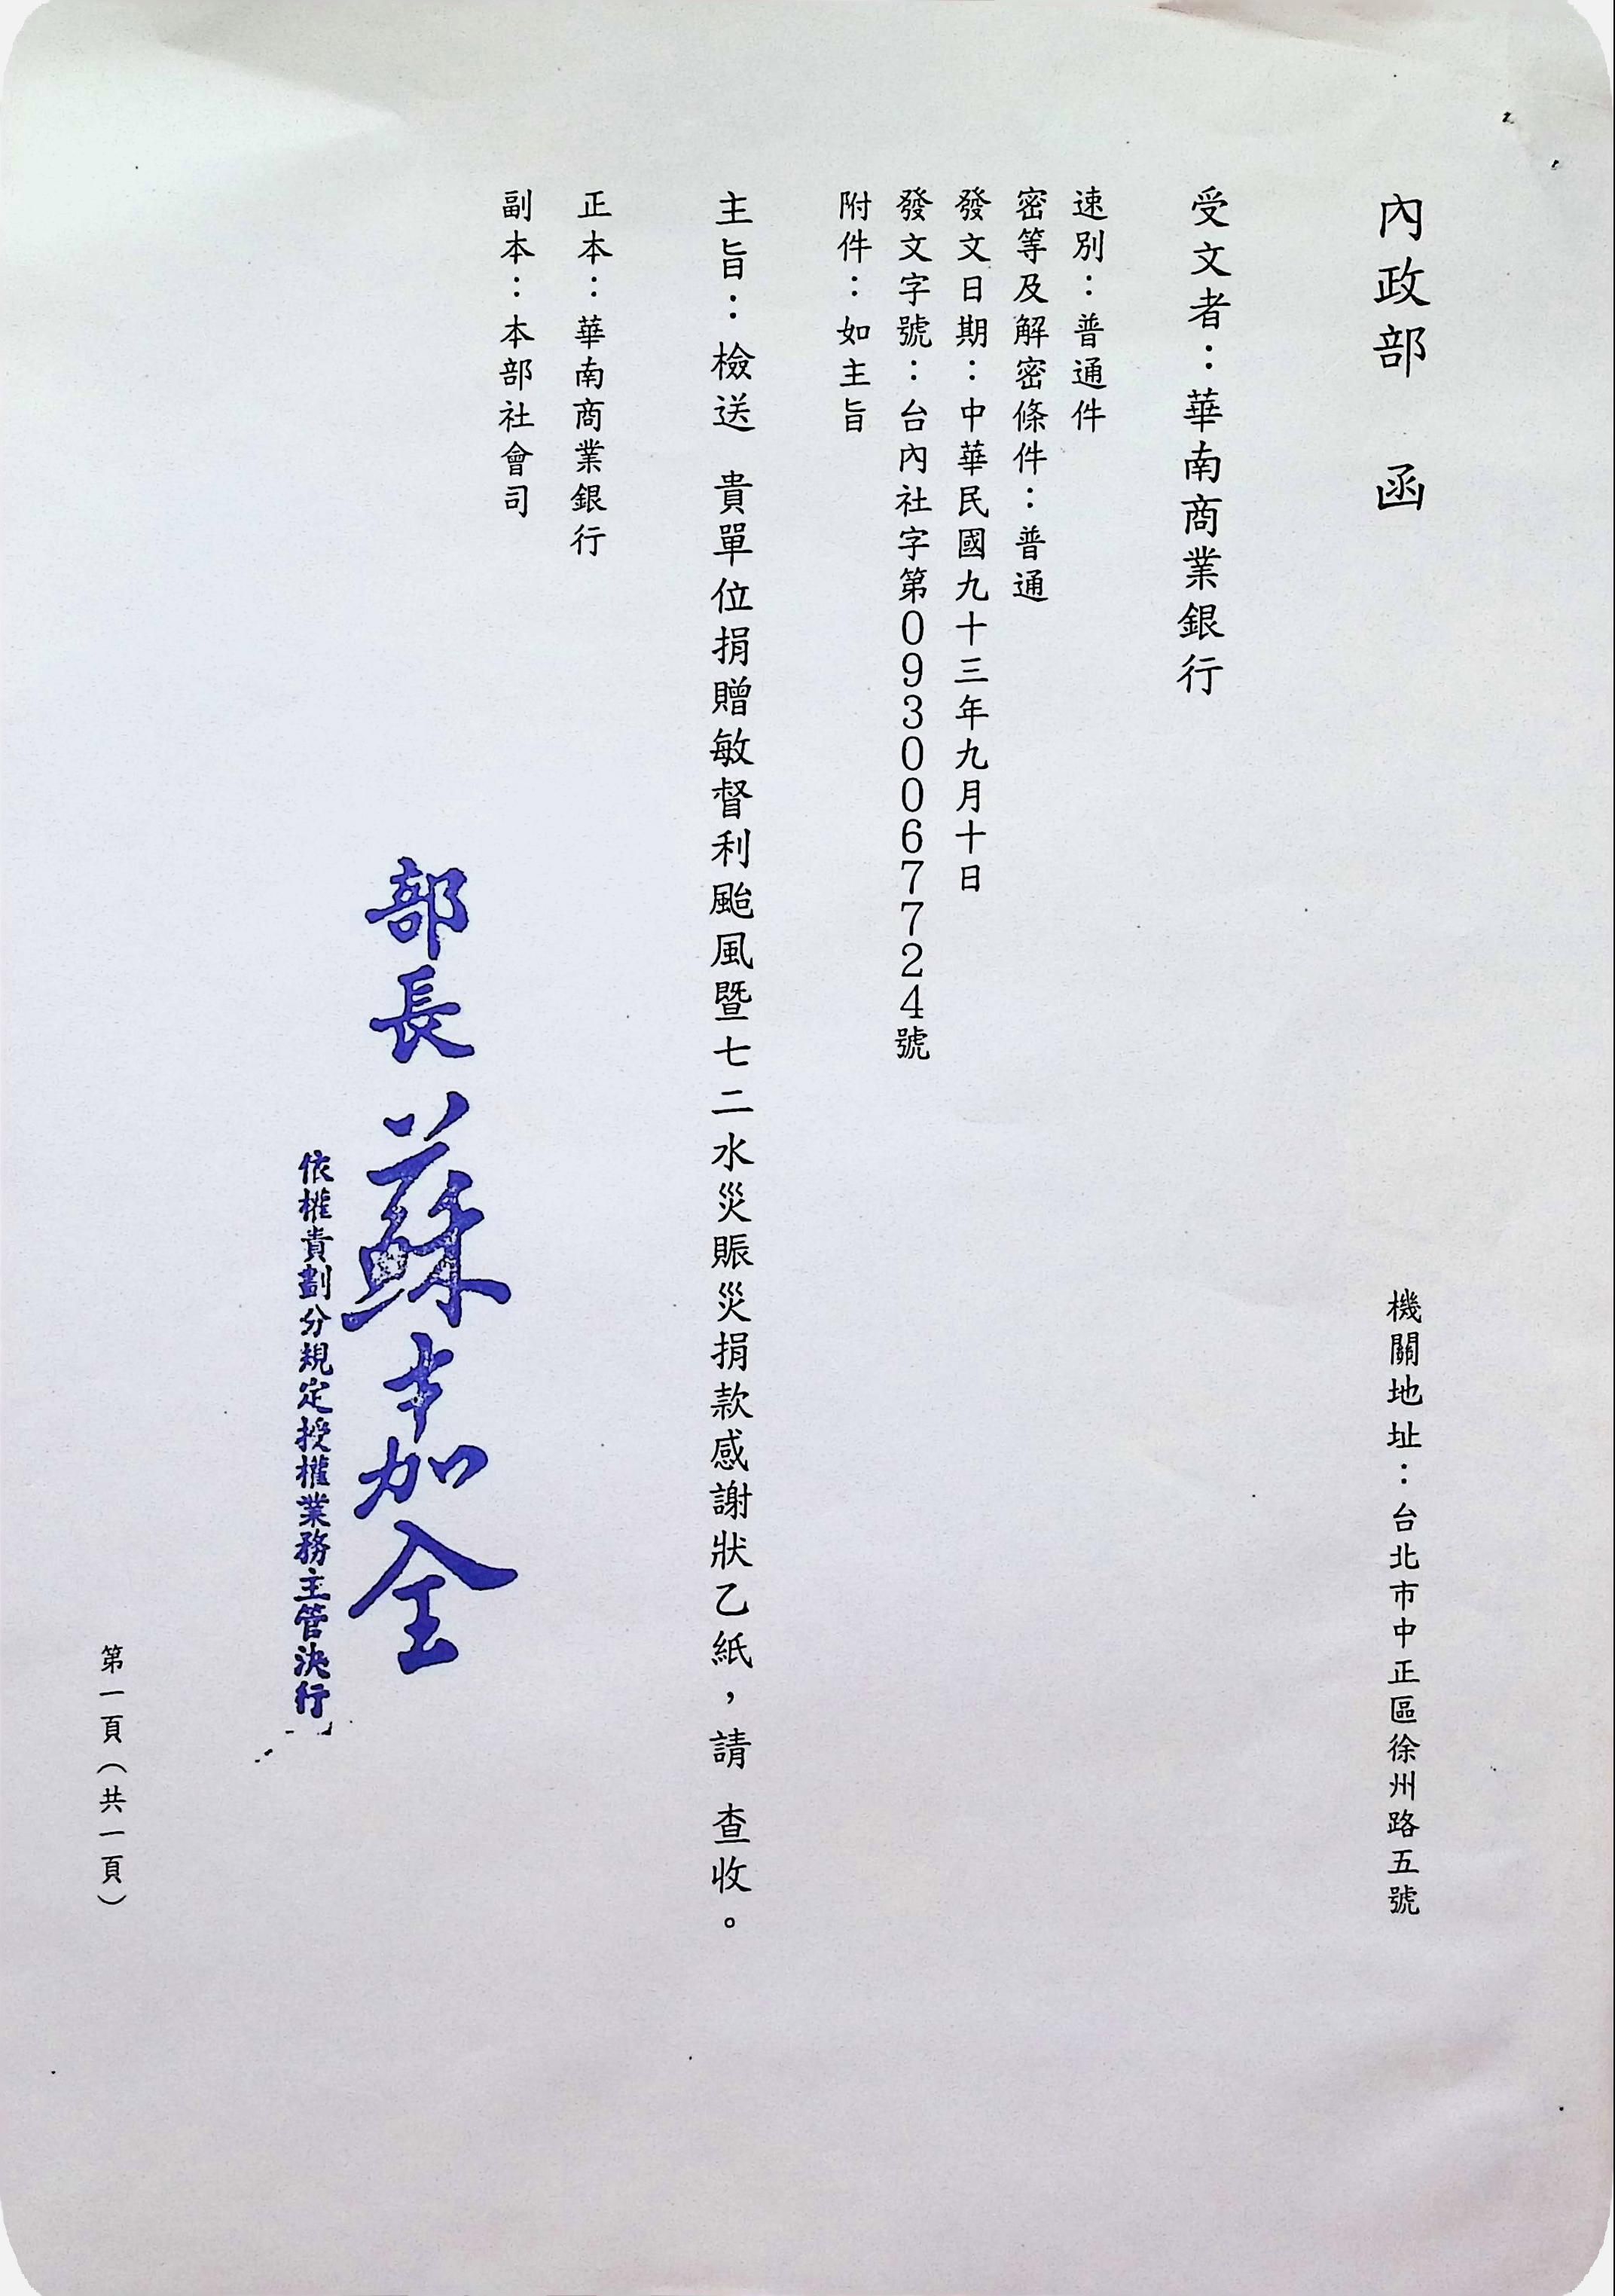 內政部　函
機關地址：台北市中正區徐州路五號
受文者：華南商業銀行
速別：普通件
密等及解密條件：普通
發文日期：中華民國九十三年九月十日
發文字號：台內社字第0930067724號
附件：如主旨
主旨：檢送　貴單位捐贈敏督利颱風暨七二水災賑災捐款感謝狀乙紙，請　查收。
正本：華南商業銀行
副本：本部社會司
部長 蘇嘉全
依權責劃分規定授權業務主管決行
第一頁（共一頁）